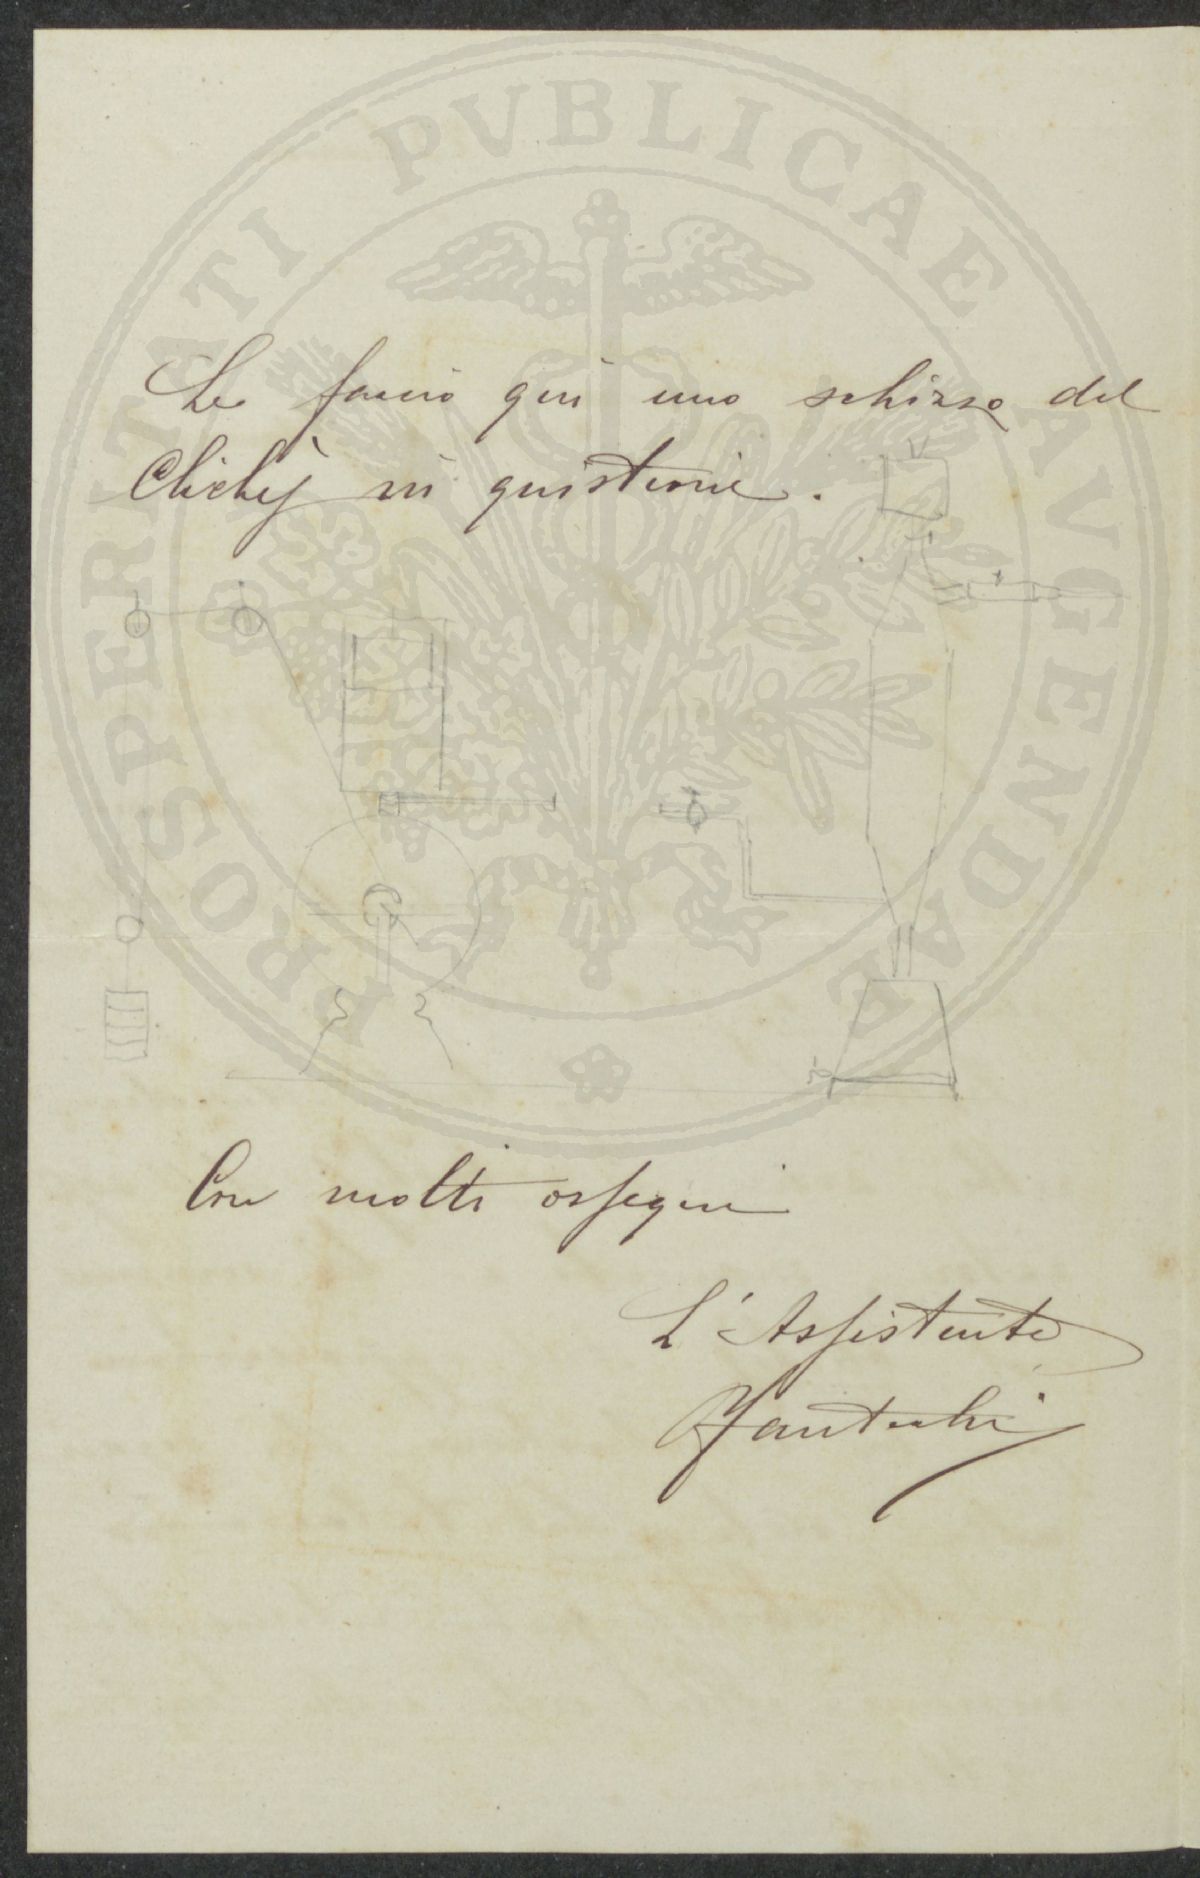 PROSPERITATI PUBLICAE AUGENDAE
Le faccio qui uno schizzo del
Clichéj in quistione.
Con molti ossequi
L'Assistente